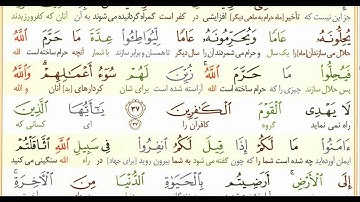 جز این نیست که تأخیر [ماه حرام به ماهی دیگر] افزایشی در کفر است گمراه گردانیده می‌شوند به آن آنان که کفر ورزیدند
يُحِلُّونَهُ عَامًا وَيُحَرِّمُونَهُ عَامًا لِيُوَاطِئُوا عِدَّةَ مَا حَرَّمَ اللَّهُ
حلال می‌سازند آن [ماه] را یک سال و حرام می‌شمرند آن را سال دیگر تا همسان و برابر سازند با شمار آنچه حرام ساخته است الله
فَيُحِلُّوا مَا حَرَّمَ اللَّهُ زُيِّنَ لَهُمْ سُوءُ أَعْمَالِهِمْ وَاللَّهُ
پس حلال سازند چیزی را که حرام ساخته است الله آراسته شده است برای شان کردارهای [بد] آنان و الله
لَا يَهْدِي الْقَوْمَ الْكَافِرِينَ ٣٧ يَا أَيُّهَا الَّذِينَ
راه نمی نماید گروه کافران را ٣٧ ای کسانی که
ءَامَنُوا مَا لَكُمْ إِذَا قِيلَ لَكُمُ انْفِرُوا فِي سَبِيلِ اللَّهِ اثَّاقَلْتُمْ
ایمان آورده‌اید چه شده است شما را که چون گفته می‌شود به شما بیرون روید [برای جهاد] در راه الله سنگینی می کنید
إِلَى الْأَرْضِ أَرَضِيتُمْ بِالْحَيَاةِ الدُّنْيَا مِنَ الْآخِرَةِ